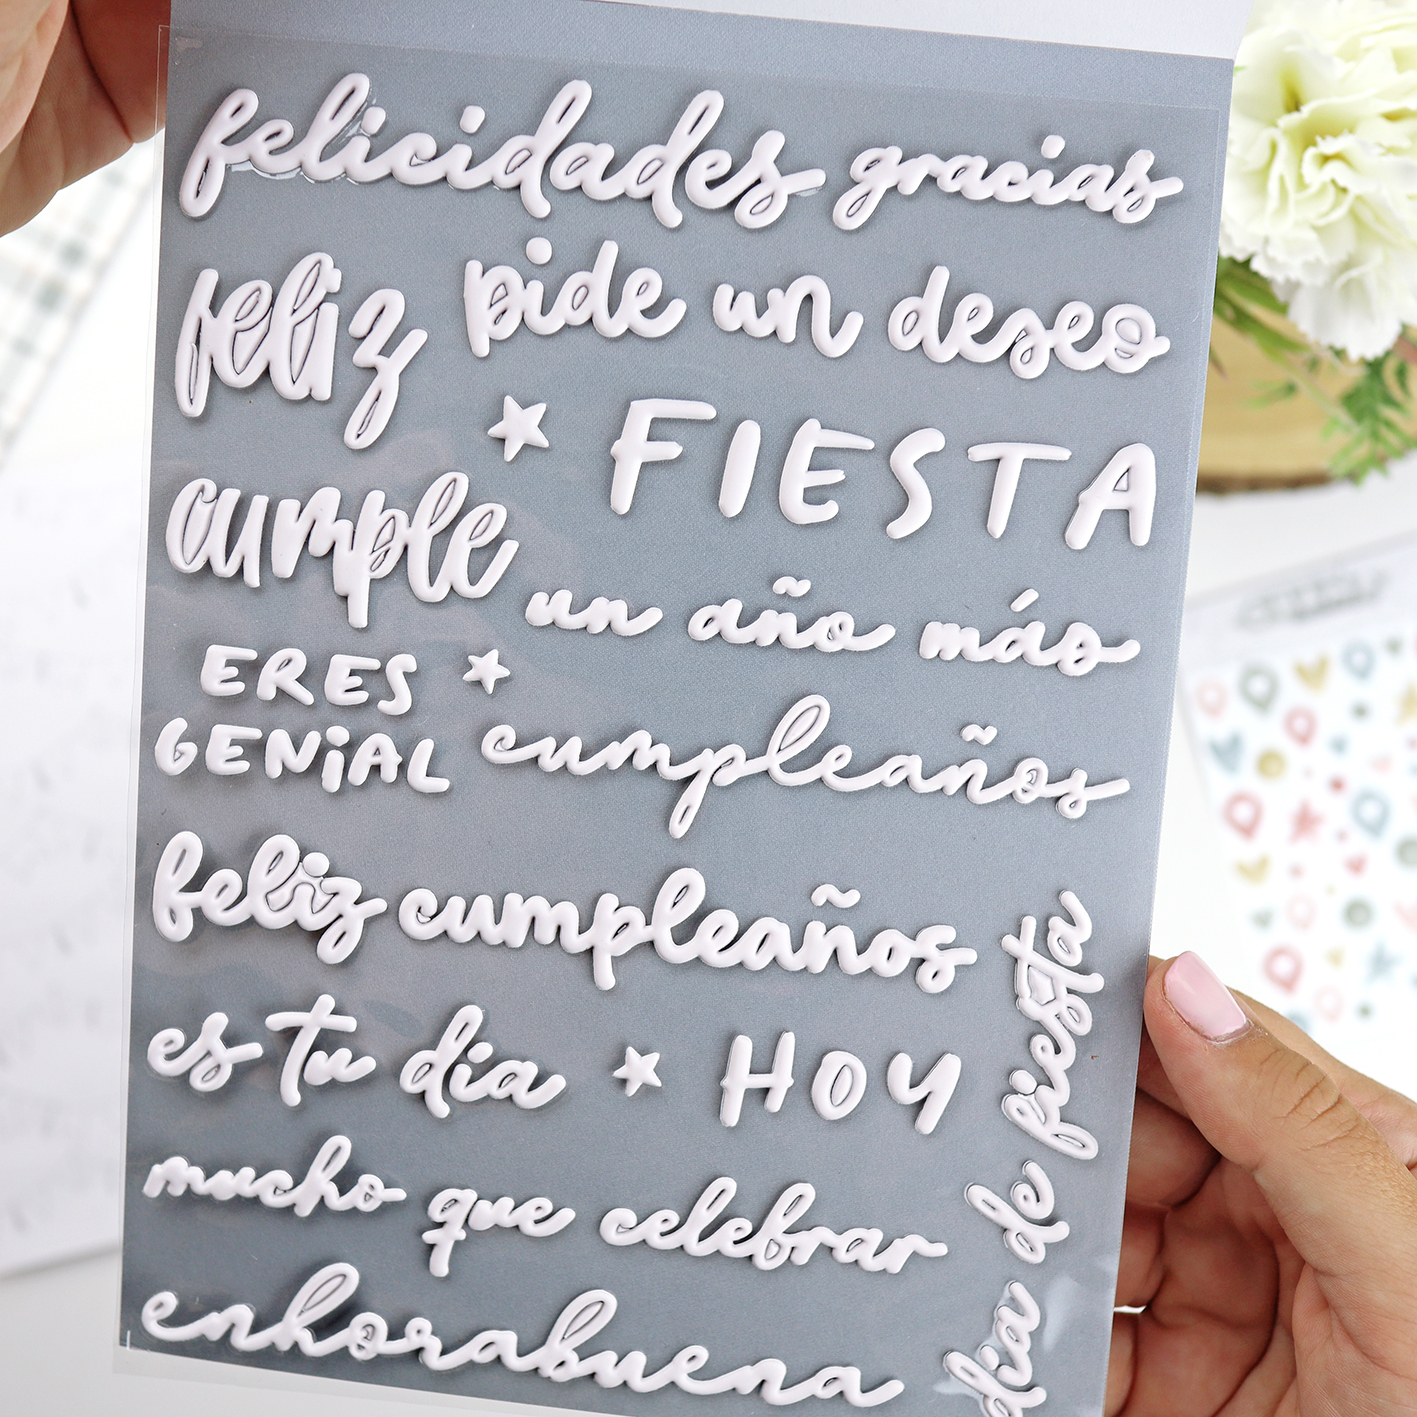 felicidades gracias
feliz
pide un deseo
FIESTA
cumple
un año más
ERES
GENiAL
cumpleaños
feliz cumpleaños
es tu día
HOY
mucho que celebrar
enhorabuena
día de fiesta